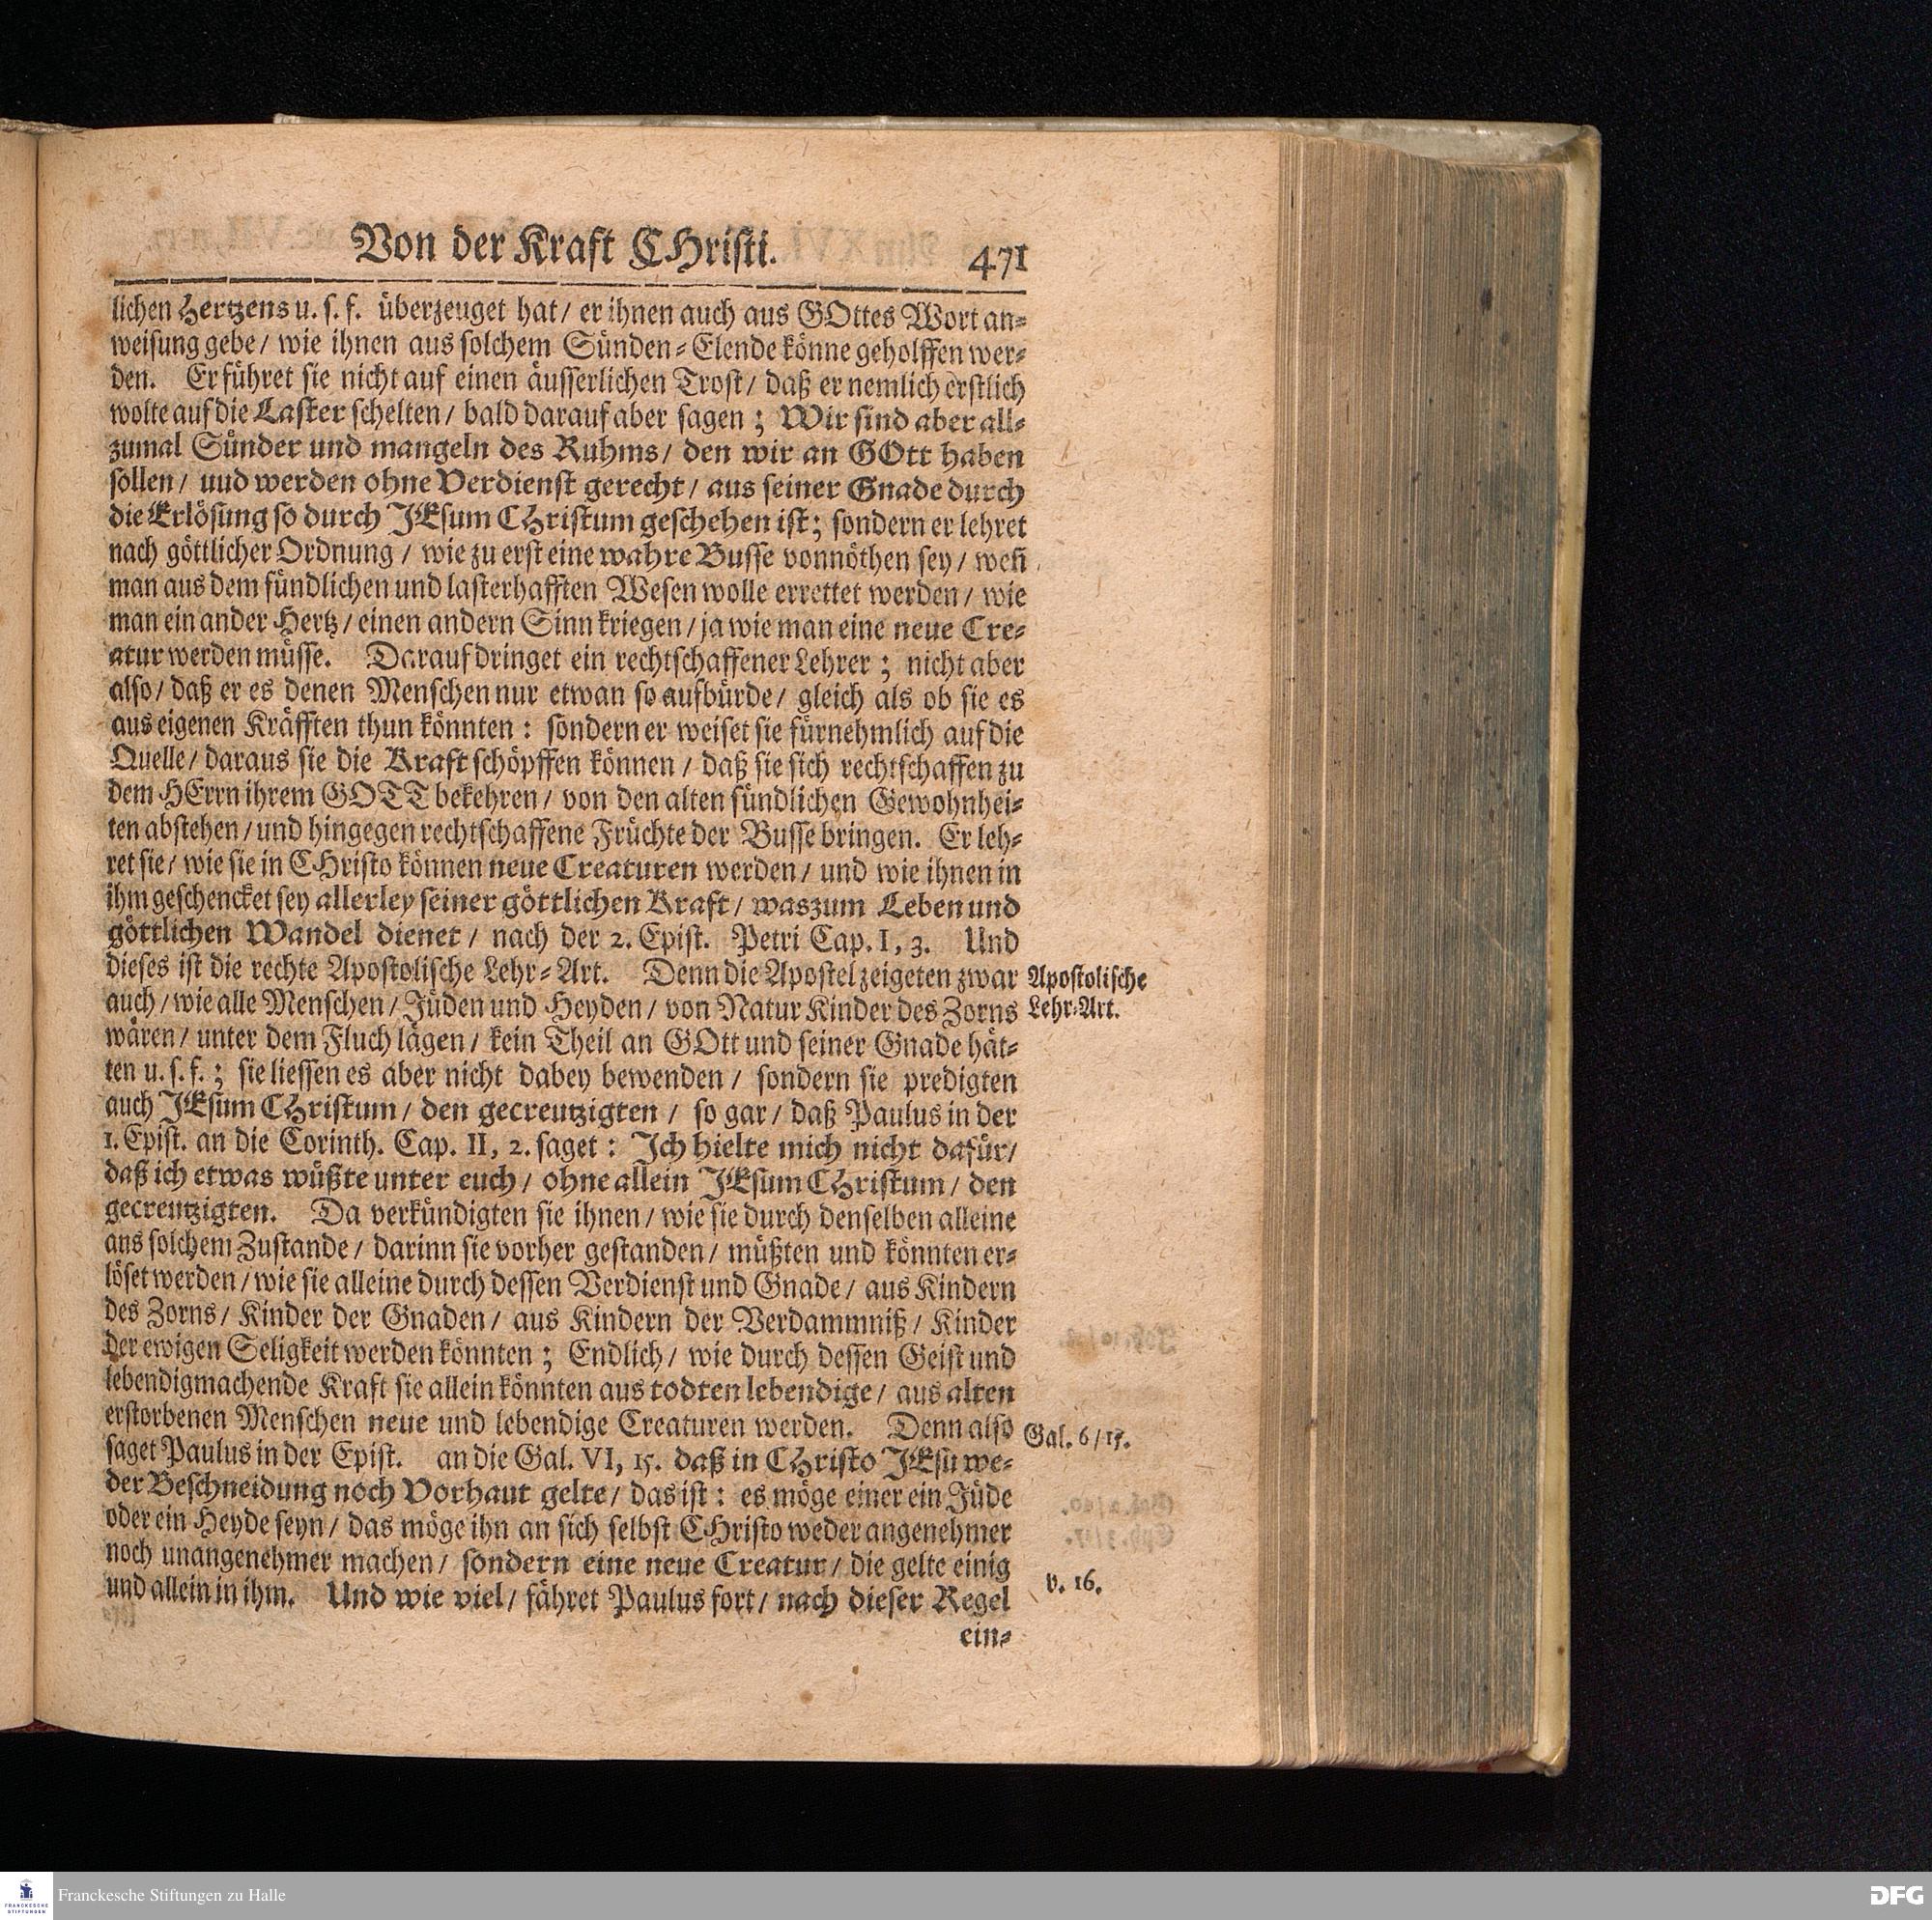 Von der Kraft CHristi. 471
lichen Hertzens u. s. f. überzeuget hat / er ihnen auch aus GOttes Wort an-
weisung gebe / wie ihnen aus solchem Sünden-Elende könne geholffen wer-
den. Er führet sie nicht auf einen äusserlichen Trost / daß er nemlich erstlich
wolte auf die Laster schelten / bald darauf aber sagen ; Wir sind aber all-
zumal Sünder und mangeln des Ruhms / den wir an GOtt haben
sollen / uud werden ohne Verdienst gerecht / aus seiner Gnade durch
die Erlösung so durch JEsum CHristum geschehen ist ; sondern er lehret
nach göttlicher Ordnung / wie zu erst eine wahre Busse vonnöthen sey / weñ
man aus dem sündlichen und lasterhafften Wesen wolle errettet werden / wie
man ein ander Hertz / einen andern Sinn kriegen / ja wie man eine neue Cre-
atur werden müsse. Darauf dringet ein rechtschaffener Lehrer ; nicht aber
also / daß er es denen Menschen nur etwan so aufbürde / gleich als ob sie es
aus eigenen Kräfften thun könnten : sondern er weiset sie fürnehmlich auf die
Quelle / daraus sie die Kraft schöpffen können / daß sie sich rechtschaffen zu
dem HErrn ihrem GOTT bekehren / von den alten sündlichen Gewohnhei-
ten abstehen / und hingegen rechtschaffene Früchte der Busse bringen. Er leh-
ret sie / wie sie in CHristo können neue Creaturen werden / und wie ihnen in
ihm geschencket sey allerley seiner göttlichen Kraft / was zum Leben und
göttlichen Wandel dienet / nach der 2. Epist. Petri Cap. I, 3. Und
dieses ist die rechte Apostolische Lehr-Art. Denn die Apostel zeigeten zwar Apostolische
auch / wie alle Menschen / Jüden und Heyden / von Natur Kinder des Zorns Lehr-Art.
wären / unter dem Fluch lägen / kein Theil an GOtt und seiner Gnade hät-
ten u. s. f. ; sie liessen es aber nicht dabey bewenden / sondern sie predigten
auch JEsum CHristum / den gecreutzigten / so gar / daß Paulus in der
1. Epist. an die Corinth. Cap. II, 2. saget : Jch hielte mich nicht dafür /
daß ich etwas wüßte unter euch / ohne allein JEsum CHristum / den
gecreutzigten. Da verkündigten sie ihnen / wie sie durch denselben alleine
aus solchem Zustande / darinn sie vorher gestanden / müßten und könnten er-
löset werden / wie sie alleine durch dessen Verdienst und Gnade / aus Kindern
des Zorns / Kinder der Gnaden / aus Kindern der Verdammniß / Kinder
der ewigen Seligkeit werden könnten ; Endlich / wie durch dessen Geist und
lebendigmachende Kraft sie allein könnten aus todten lebendige / aus alten
erstorbenen Menschen neue und lebendige Creaturen werden. Denn also Gal. 6 / 15.
saget Paulus in der Epist. an die Gal. VI, 15. daß in CHristo JEsu we-
der Beschneidung noch Vorhaut gelte / das ist : es möge einer ein Jüde
oder ein Heyde seyn / das möge ihn an sich selbst CHristo weder angenehmer
noch unangenehmer machen / sondern eine neue Creatur / die gelte einig
und allein in ihm. Und wie viel / fähret Paulus fort / nach dieser Regel v. 16.
ein-
Franckesche Stiftungen zu Halle
FRANCKESCHE STIFTUNGEN
DFG